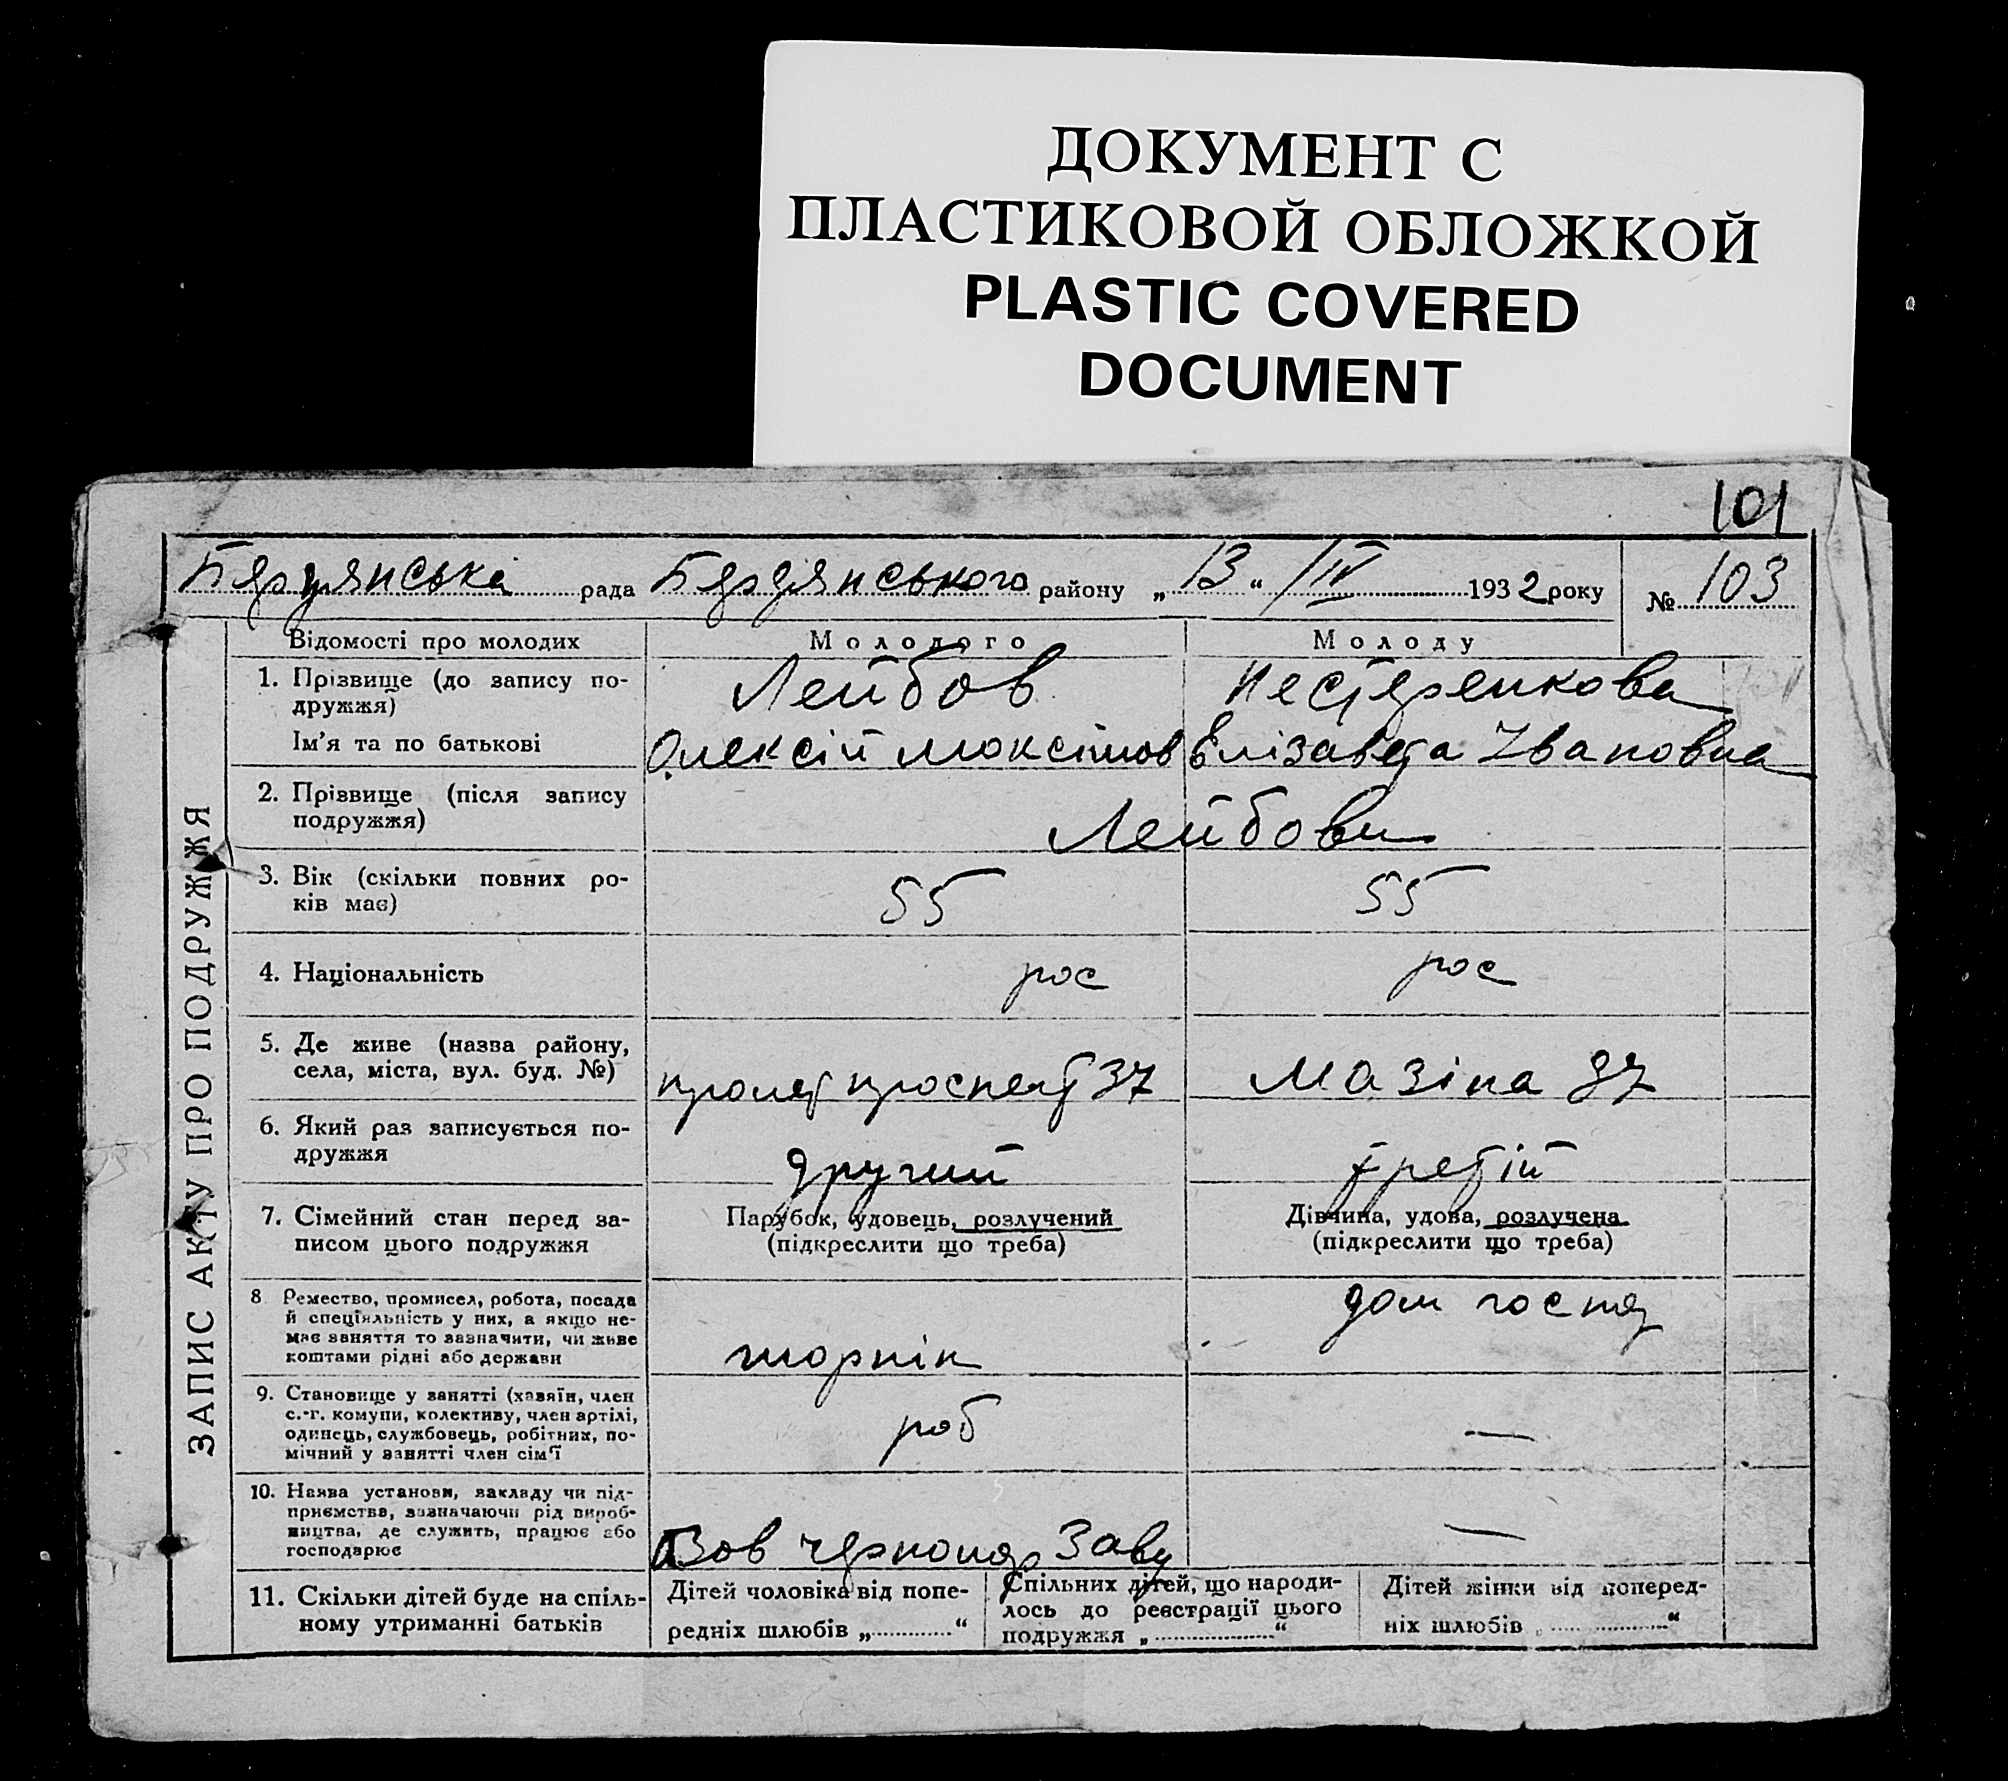 ДОКУМЕНТ С
ПЛАСТИКОВОЙ ОБЛОЖКОЙ
PLASTIC COVERED
DOCUMENT
101
Бердянська рада Бердянського району „13“ /IV 1932 року № 103
ЗАПИС АКТУ ПРО ПОДРУЖЖЯ
Відомості про молодих Молодого Молоду
1. Прізвище (до запису по-
дружжя) Лейбов Нестеренкова
Ім’я та по батькові Олексій Максімов Єлізавета Івановна
2. Прізвище (після запису
подружжя) Лейбови
3. Вік (скільки повних ро-
ків має) 55 55
4. Національність рос рос
5. Де живе (назва району,
села, міста, вул. буд. №) пролет проспект 37 Мазіна 37
6. Який раз записується по-
дружжя другий третій
7. Сімейний стан перед за-
писом цього подружжя
Парубок, удовець, розлучений
(підкреслити що треба)
Дівчина, удова, розлучена
(підкреслити що треба)
8 Ремество, промисел, робота, посада
й спеціяльність у них, а якщо не-
має заняття то зазначити, чи живе
коштами рідні або держави
шорнік дом госпо
9. Становище у занятті (хазяїн, член
с.-г. комуни, колективу, член артілі,
одинець, службовець, робітник, по-
мічний у занятті член сім’ї
роб —
10. Назва установи, закладу чи під-
приємства, зазначаючи рід вироб-
ництва, де служить, працює або
господарює
Азов —
11. Скільки дітей буде на спіль-
ному утриманні батьків
Дітей чоловіка від попе-
редніх шлюбів „............“
Спільних дітей, що народи-
лось до реєстрації цього
подружжя „..................“
Дітей жінки від поперед-
ніх шлюбів „..................“